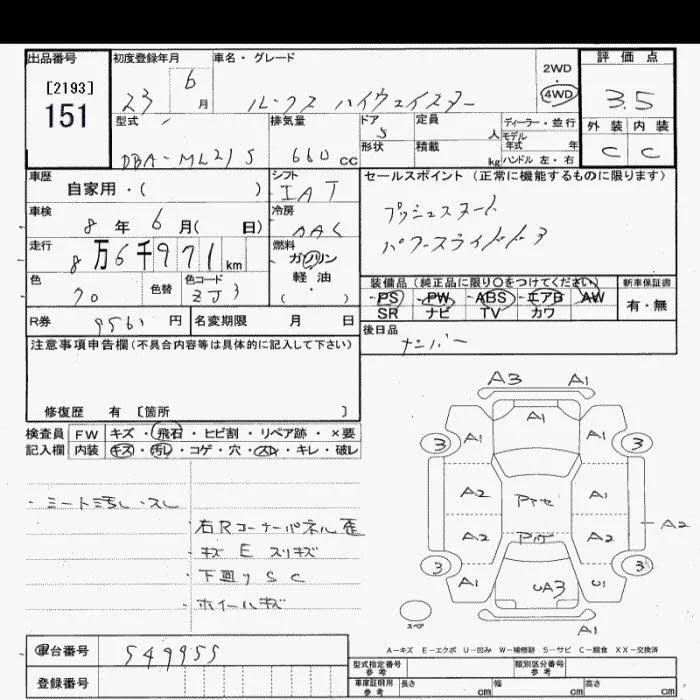 出品番号
[2193]
151
初度登録年月
23 6月
車名・グレード
ルークス ハイウェイスター
2WD
・
4WD
評価点
3.5
外装 内装
C C
型式
DBA-ML21S
排気量
660 cc
ドア 5
形状
定員 人
積載 kg
ディーラー・並行
モデル年式 年
ハンドル 左・右
車歴
自家用・( )
シフト
IAT
セールスポイント (正常に機能するものに限ります)
プッシュスタート
パワースライドドア
車検
8年 6月( 日)
冷房
AAC
走行
8万6千971km
燃料
ガソリン
軽・油
( ・ )
色
クロ
色替
色コード
ZJ3
装備品 (純正品に限り○をつけてください)
PS PW ABS エアB AW
SR ナビ TV カワ
新車保証書
有・無
R券 9561円
名変期限 月 日
後日品
ナンバー
注意事項申告欄 (不具合内容等は具体的に記入して下さい)
修復歴 有 [箇所 ]
検査員記入欄
FW キズ・飛石・ヒビ割・リペア跡・×要
内装 キズ・汚レ・コゲ・穴・スレ・キレ・破レ
・シート汚レ・スレ
・右Rコーナーパネル歪
・キズ E スリキズ
・下回り S C
・ホイールキズ
A3 A1
A1
3 A1 A1 3
A2 A1
A2
A2 A2
3 3
A1 UA3 U1
A1
スペア
A-キズ E-エクボ U-凹み W-補修跡 S-サビ C-腐食 XX-交換済
車台番号 549955
登録番号
型式指定番号 参考
類別区分番号 参考
車庫証明用 参考 長さ cm 幅 cm 高さ cm